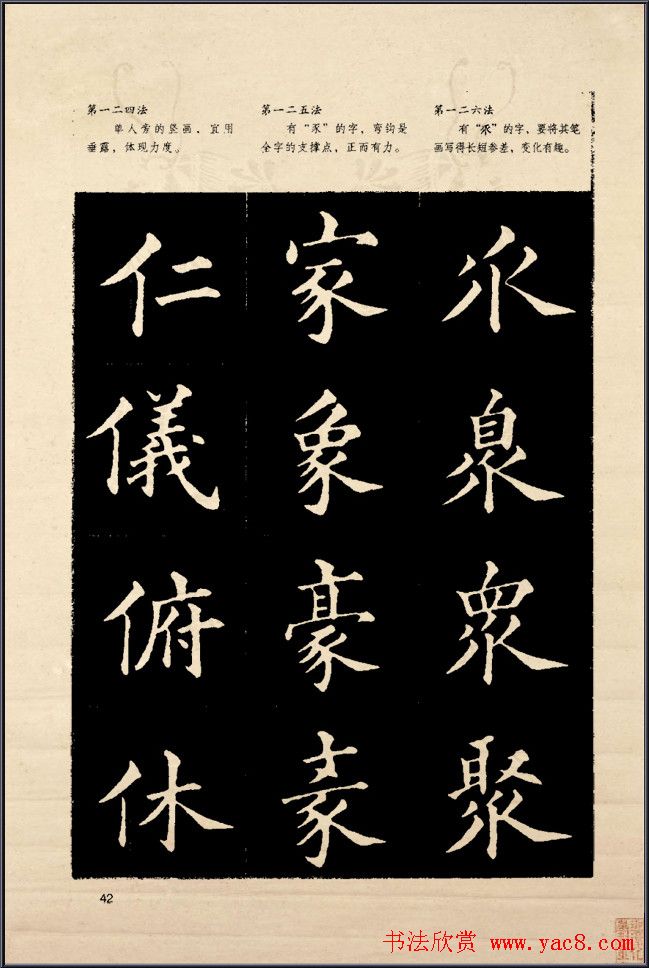 第一二四法
单人旁的竖画，宜用
垂露，体现力度。
第一二五法
有“豕”的字，弯钩是
全字的支撑点，正而有力。
第一二六法
有“乑”的字，要将其笔
画写得长短参差，变化有趣。
仁儀俯休
家象豪
乑臮眾聚
42
书法欣赏 www.yac8.com